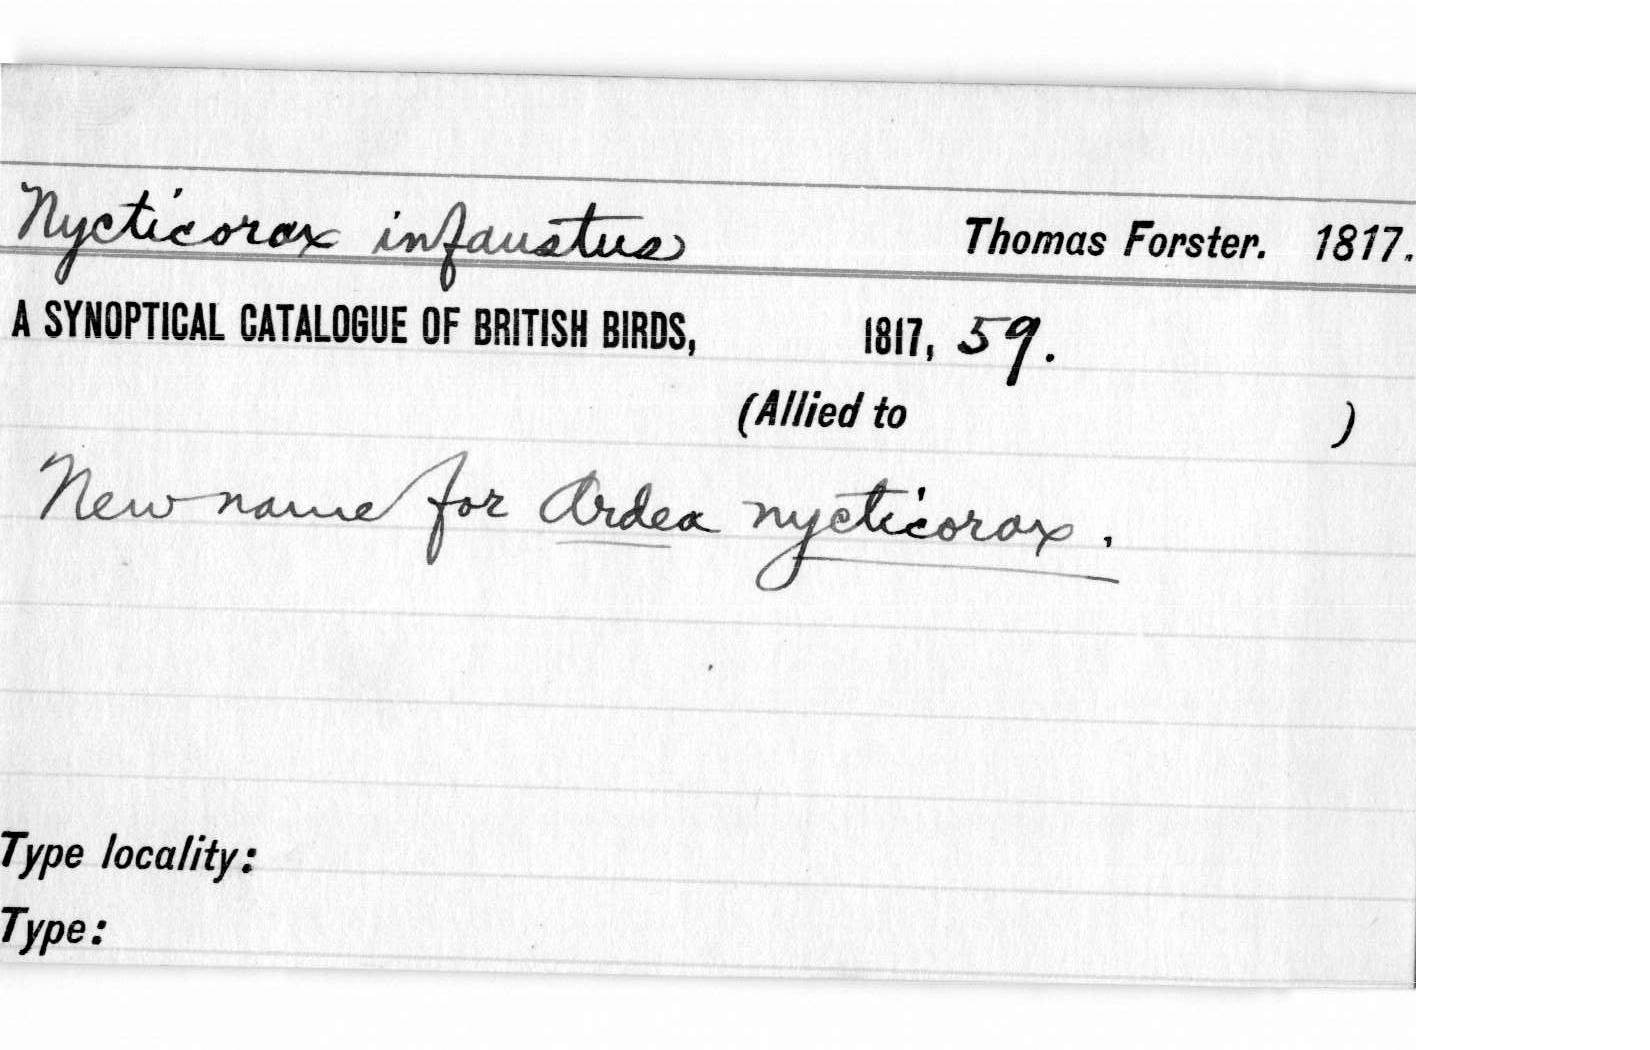 Nycticorax infaustus Thomas Forster. 1817.
A SYNOPTICAL CATALOGUE OF BRITISH BIRDS, 1817, 59.
(Allied to )
New name for Ardea nycticorax.
Type locality:
Type: